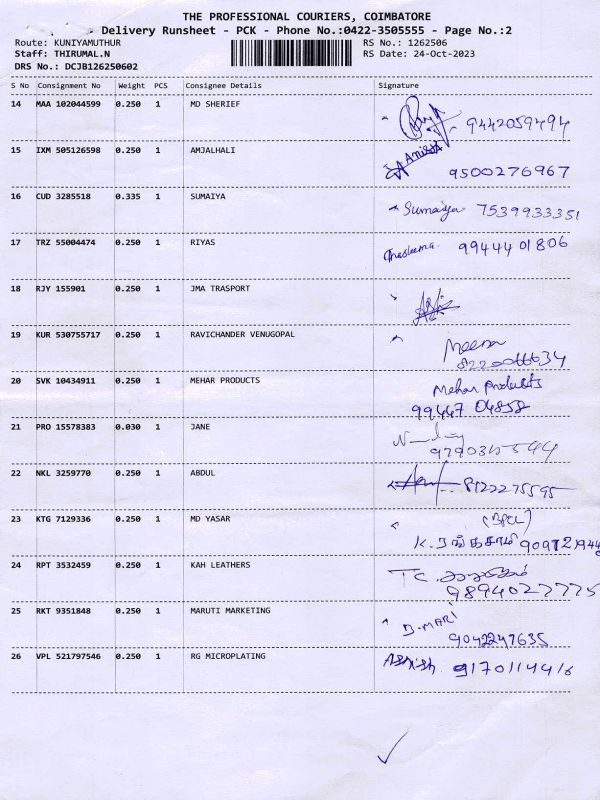 THE PROFESSIONAL COURIERS, COIMBATORE
Delivery Runsheet - PCK - Phone No.:0422-3505555 - Page No.:2
Route: KUNIYAMUTHUR RS No.: 1262506
Staff: THIRUMAL.N RS Date: 24-Oct-2023
DRS No.: DCJB126250602
S No Consignment No Weight PCS Consignee Details Signature
14 MAA 102044599 0.250 1 MD SHERIEF 9442059494
15 IXM 505126598 0.250 1 AMJALHALI Anish
9500276967
16 CUD 3285518 0.335 1 SUMAIYA Sumaiya 7539933351
17 TRZ 55004474 0.250 1 RIYAS Thasleema 9944401806
18 RJY 155901 0.250 1 JMA TRASPORT
19 KUR 530755717 0.250 1 RAVICHANDER VENUGOPAL Meena
8220066634
20 SVK 10434911 0.250 1 MEHAR PRODUCTS Mehar Products
99447 04858
21 PRO 15578383 0.030 1 JANE
22 NKL 3259770 0.250 1 ABDUL 8122275595
23 KTG 7129336 0.250 1 MD YASAR (BPCL)
K. ரங்கசாமி
24 RPT 3532459 0.250 1 KAH LEATHERS T.C.
9894027775
25 RKT 9351848 0.250 1 MARUTI MARKETING D. MARI
9042247635
26 VPL 521797546 0.250 1 RG MICROPLATING Ashish. 9170114416